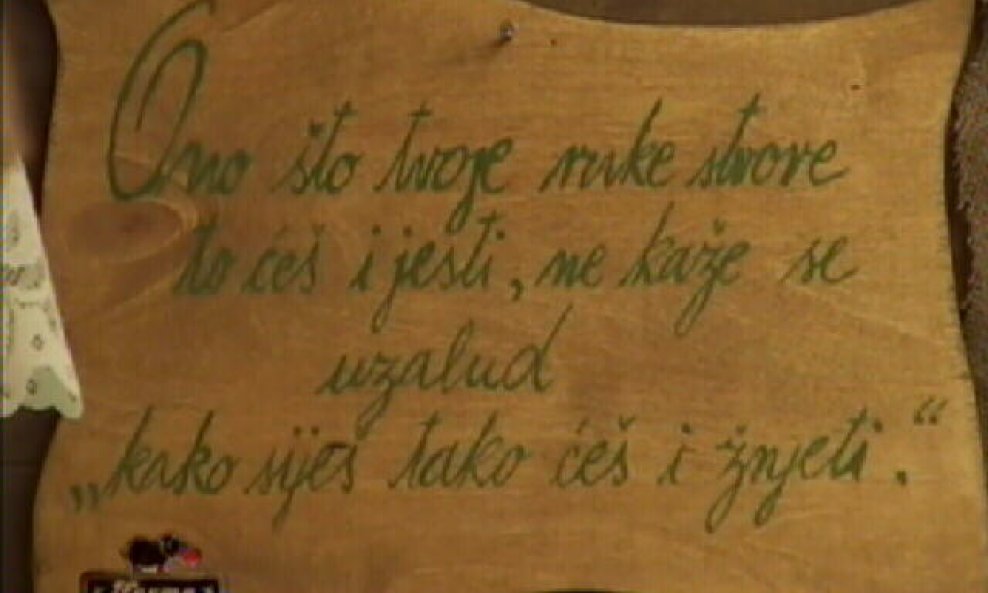 Ono što tvoje ruke stvore
to ćeš i jesti, ne kaže se
uzalud
„kako siješ tako ćeš i žnjeti.“